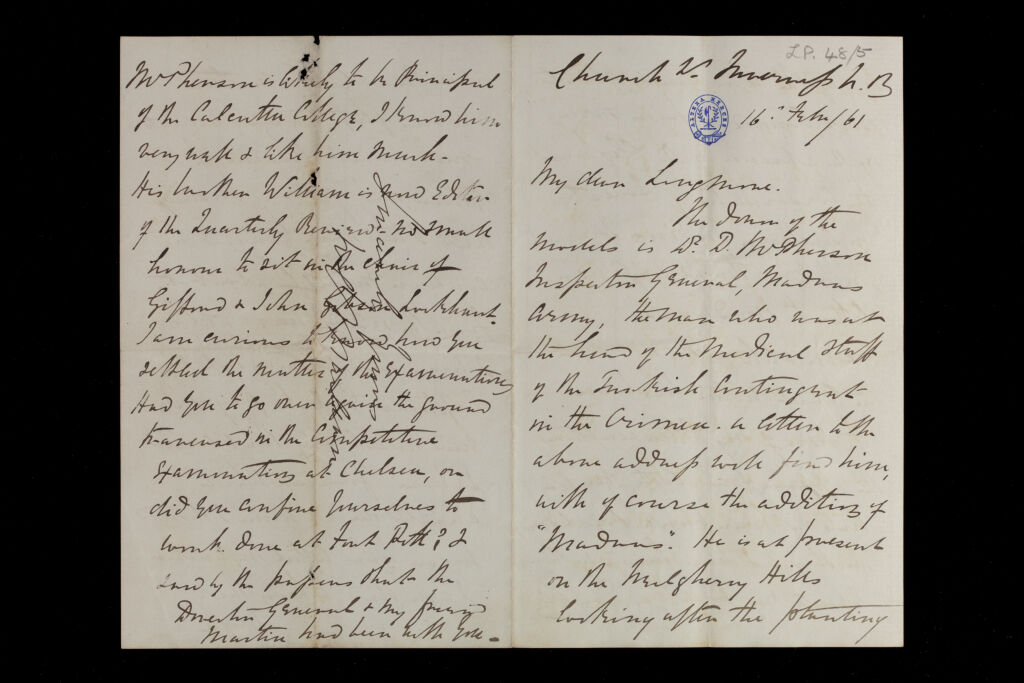 L.P. 48/5
Church St. Inverness N.B
16th Feby/61
My dear Longmore.
The donor of the
models is Dr. D. McPherson
Inspector General, Madras
Army, the man who was at
the head of the Medical Staff
of the Turkish Contingent
in the Crimea. a letter to the
above address will find him,
with of course the addition of
"Madras". He is at present
on the Neilgherry Hills
looking after the planting
McPherson is likely to be Principal
of the Calcutta College, I know him
very well & like him much.
His brother William is now Editor
of the Quarterly Review no small
honour to sit in the chair of
Gifford & John Gibson Lockhart.
I am curious to know how you
settled the matter of the Examinations
Had you to go over again the ground
traversed in the Competitive
Examination at Chelsea, or
did you confine yourselves to
work done at Fort Pitt? I
saw by the papers that the
Director General & my friend
Martin had been with you -